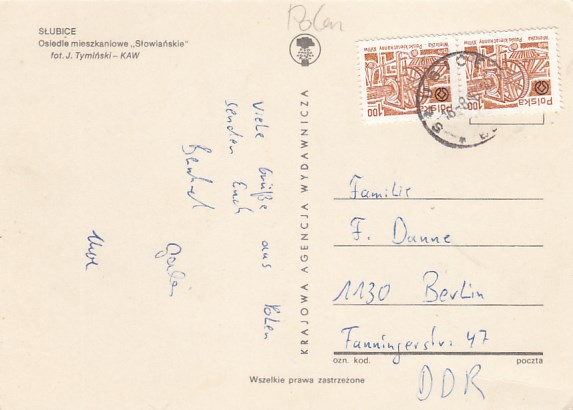 SŁUBICE
Osiedle mieszkaniowe „Słowiańskie"
fot. J. Tymiński – KAW
Polen
Polska
1.00
Polska
1.00
KRAJOWA AGENCJA WYDAWNICZA
Viele Grüße aus Polen
senden Euch
Familie
F. Danne
1130 Berlin
Fanningerstr. 47
ozn. kod. poczta
DDR
Wszelkie prawa zastrzeżone